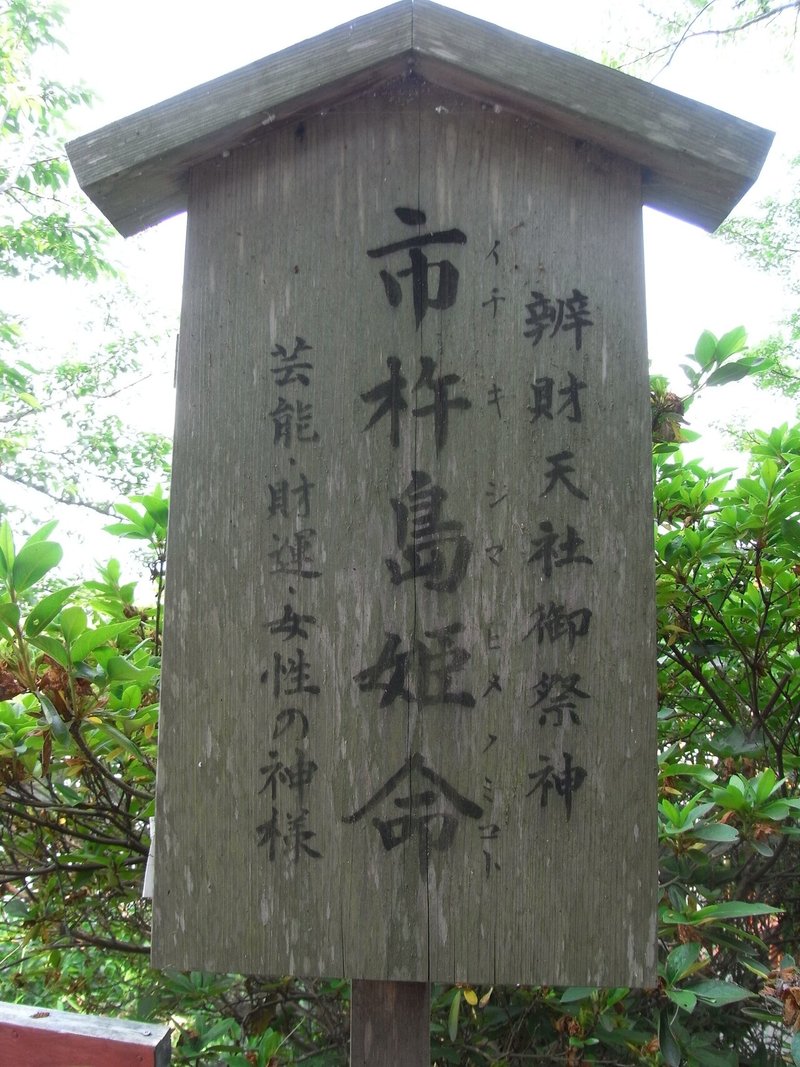 辨財天社御祭神
イチキシマヒメノミコト
市杵島姫命
芸能・財運・女性の神様